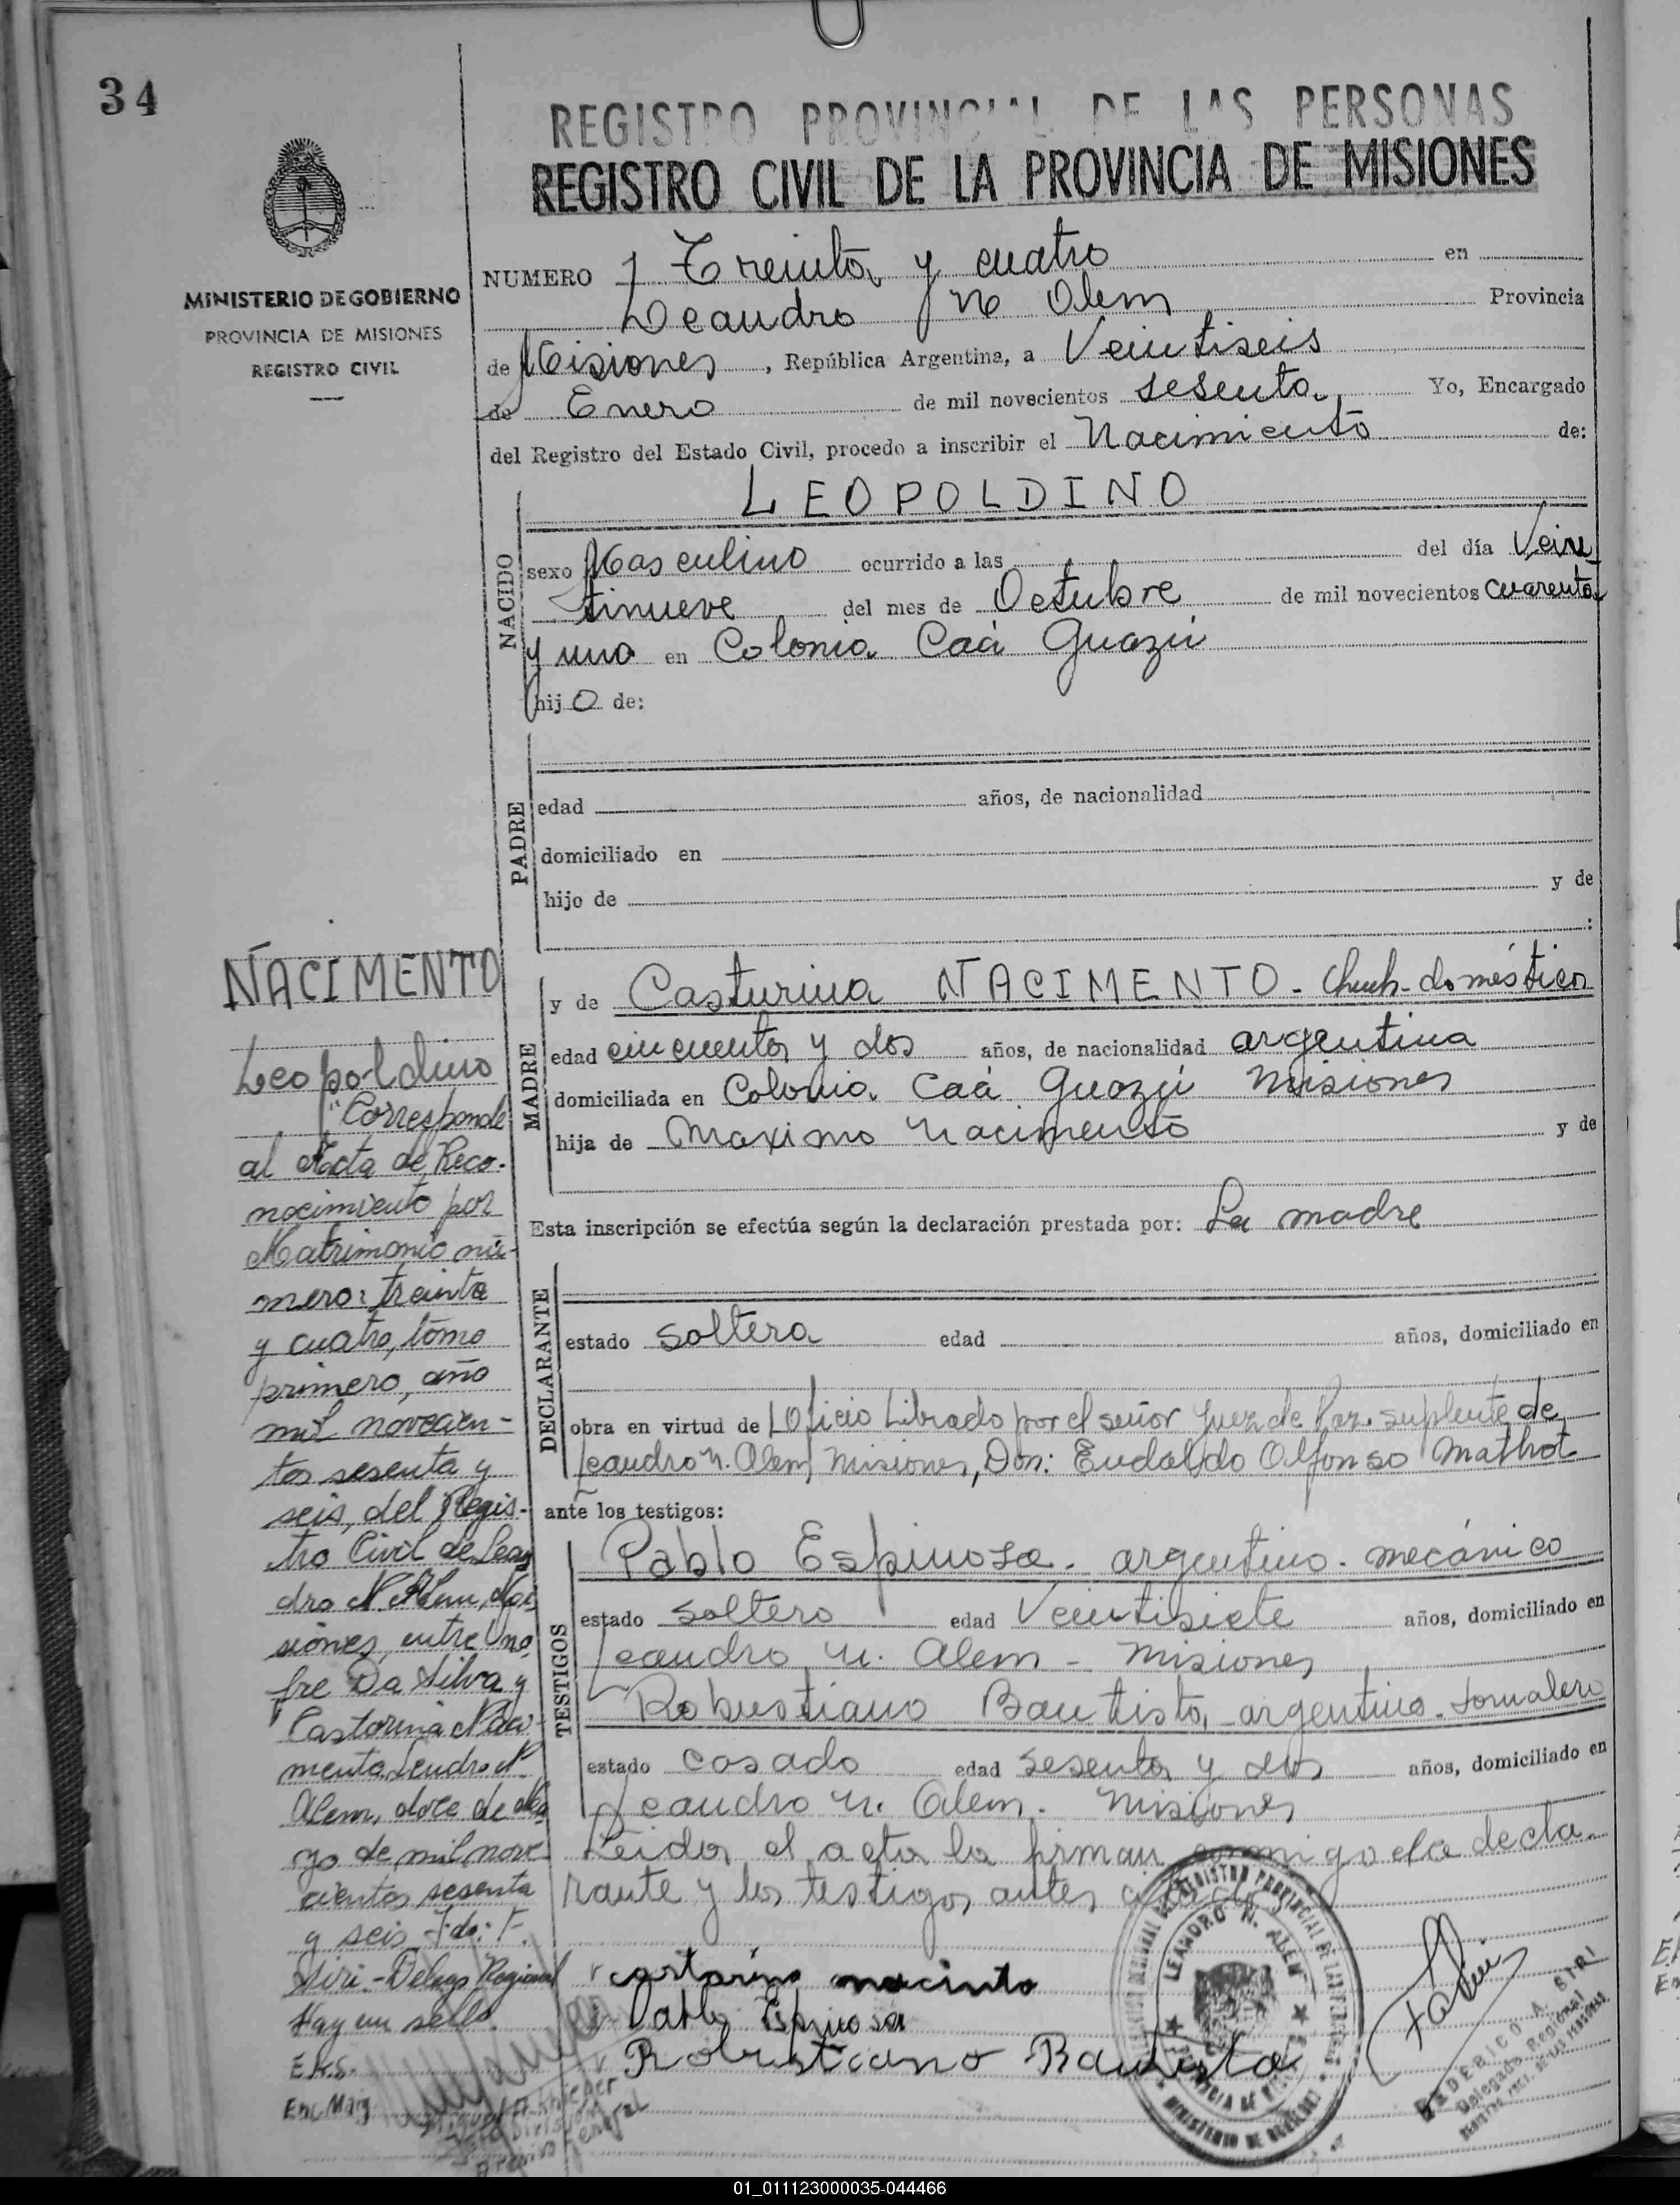 34
REGISTRO PROVINCIAL DE LAS PERSONAS
REGISTRO CIVIL DE LA PROVINCIA DE MISIONES
MINISTERIO DE GOBIERNO
PROVINCIA DE MISIONES
REGISTRO CIVIL
NUMERO Treinta y cuatro en
Leandro N Alem Provincia
de Misiones, República Argentina, a Veintiseis
de Enero de mil novecientos sesenta. Yo, Encargado
del Registro del Estado Civil, procedo a inscribir el Nacimiento de:
NACIDO
LEOPOLDINO
sexo Masculino ocurrido a las del día Vein
tinueve del mes de Octubre de mil novecientos cuarenta
y uno en Colonia Caá Guazú
hijo de:
PADRE
edad años, de nacionalidad
domiciliado en
hijo de y de
:
MADRE
y de Casturina NACIMENTO - domésticos
edad cincuenta y dos años, de nacionalidad argentina
domiciliada en Colonia Caá Guazú Misiones
hija de Maximo Nacimento y de
Esta inscripción se efectúa según la declaración prestada por: La madre
DECLARANTE
estado soltera edad años, domiciliado en
obra en virtud de Oficio Librado por el señor Juez de Paz suplente de
Leandro N. Alem Misiones, Don: Eudaldo Alfonso Mathot
ante los testigos:
TESTIGOS
Pablo Espinosa. argentino. mecánico
estado soltero edad Veintisiete años, domiciliado en
Leandro N. Alem - Misiones
Robustiano Bautista, argentino. Jornalero
estado casado edad sesenta y dos años, domiciliado en
Leandro N. Alem. Misiones
Leida el acta la firman conmigo la decla
rante y los testigos antes
castorina nacinto
Pablo Espinosa
Robusticano Bautista
NACIMENTO
Leopoldino
"Corresponde
al Acta de Reco-
nocimiento por
Matrimonio nú-
mero: treinta
y cuatro, tomo
primero, año
mil novecien-
tos sesenta y
seis, del Regis-
tro Civil de Lean
dro N. Alem, Mi
siones, entre Ono
fre Da Silva y
Castorina Naci-
mento, Leandro N.
Alem, doce de Ma
yo de mil nove
cientos sesenta
y seis Fdo: F.
Siri - Deleg. Regional
Hay un sello.
E.R.S.
Enc. Marg
LEANDRO N. ALEM
PROVINCIA DE MISIONES
MINISTERIO DE GOBIERNO
FEDERICO A. SIRI
Delegado Regional
01_011123000035-044466